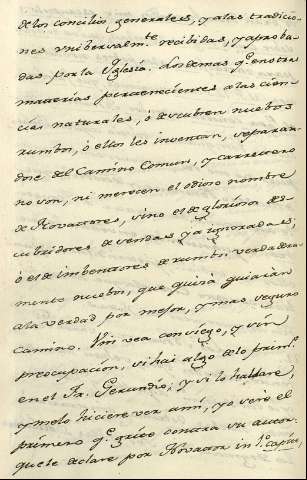 de los concilios generales, y a las tradicio-
nes vnibersalm.te recibidas, y aproba-
das por la Yglesia. Los demas q.e en otras
materias pertenecientes a las cien-
cias naturales, ó descubren nuebos
rumbos, ó ellos les inventan, separan-
dose del Camino Comun, y carretero
no son, ni merecen el odioso nombre
de Novatores, sino el de gloriosos des-
cubridores de sendas ya ignoradas,
ó el de imbentores de rumb.s verdadera-
mente nuebos, que quizá guiarán
a la verdad por mejor, y mas seguro
Camino. Vm vea con sosiego, y sin
preocupación, si hai algo de lo prim.o
en el Fr. Gerundio; y si lo hallare,
y me lo hiciere ver a mi, yo seré el
primero q.e grite contra su autor.
que se declare por Novator in l.o capite,